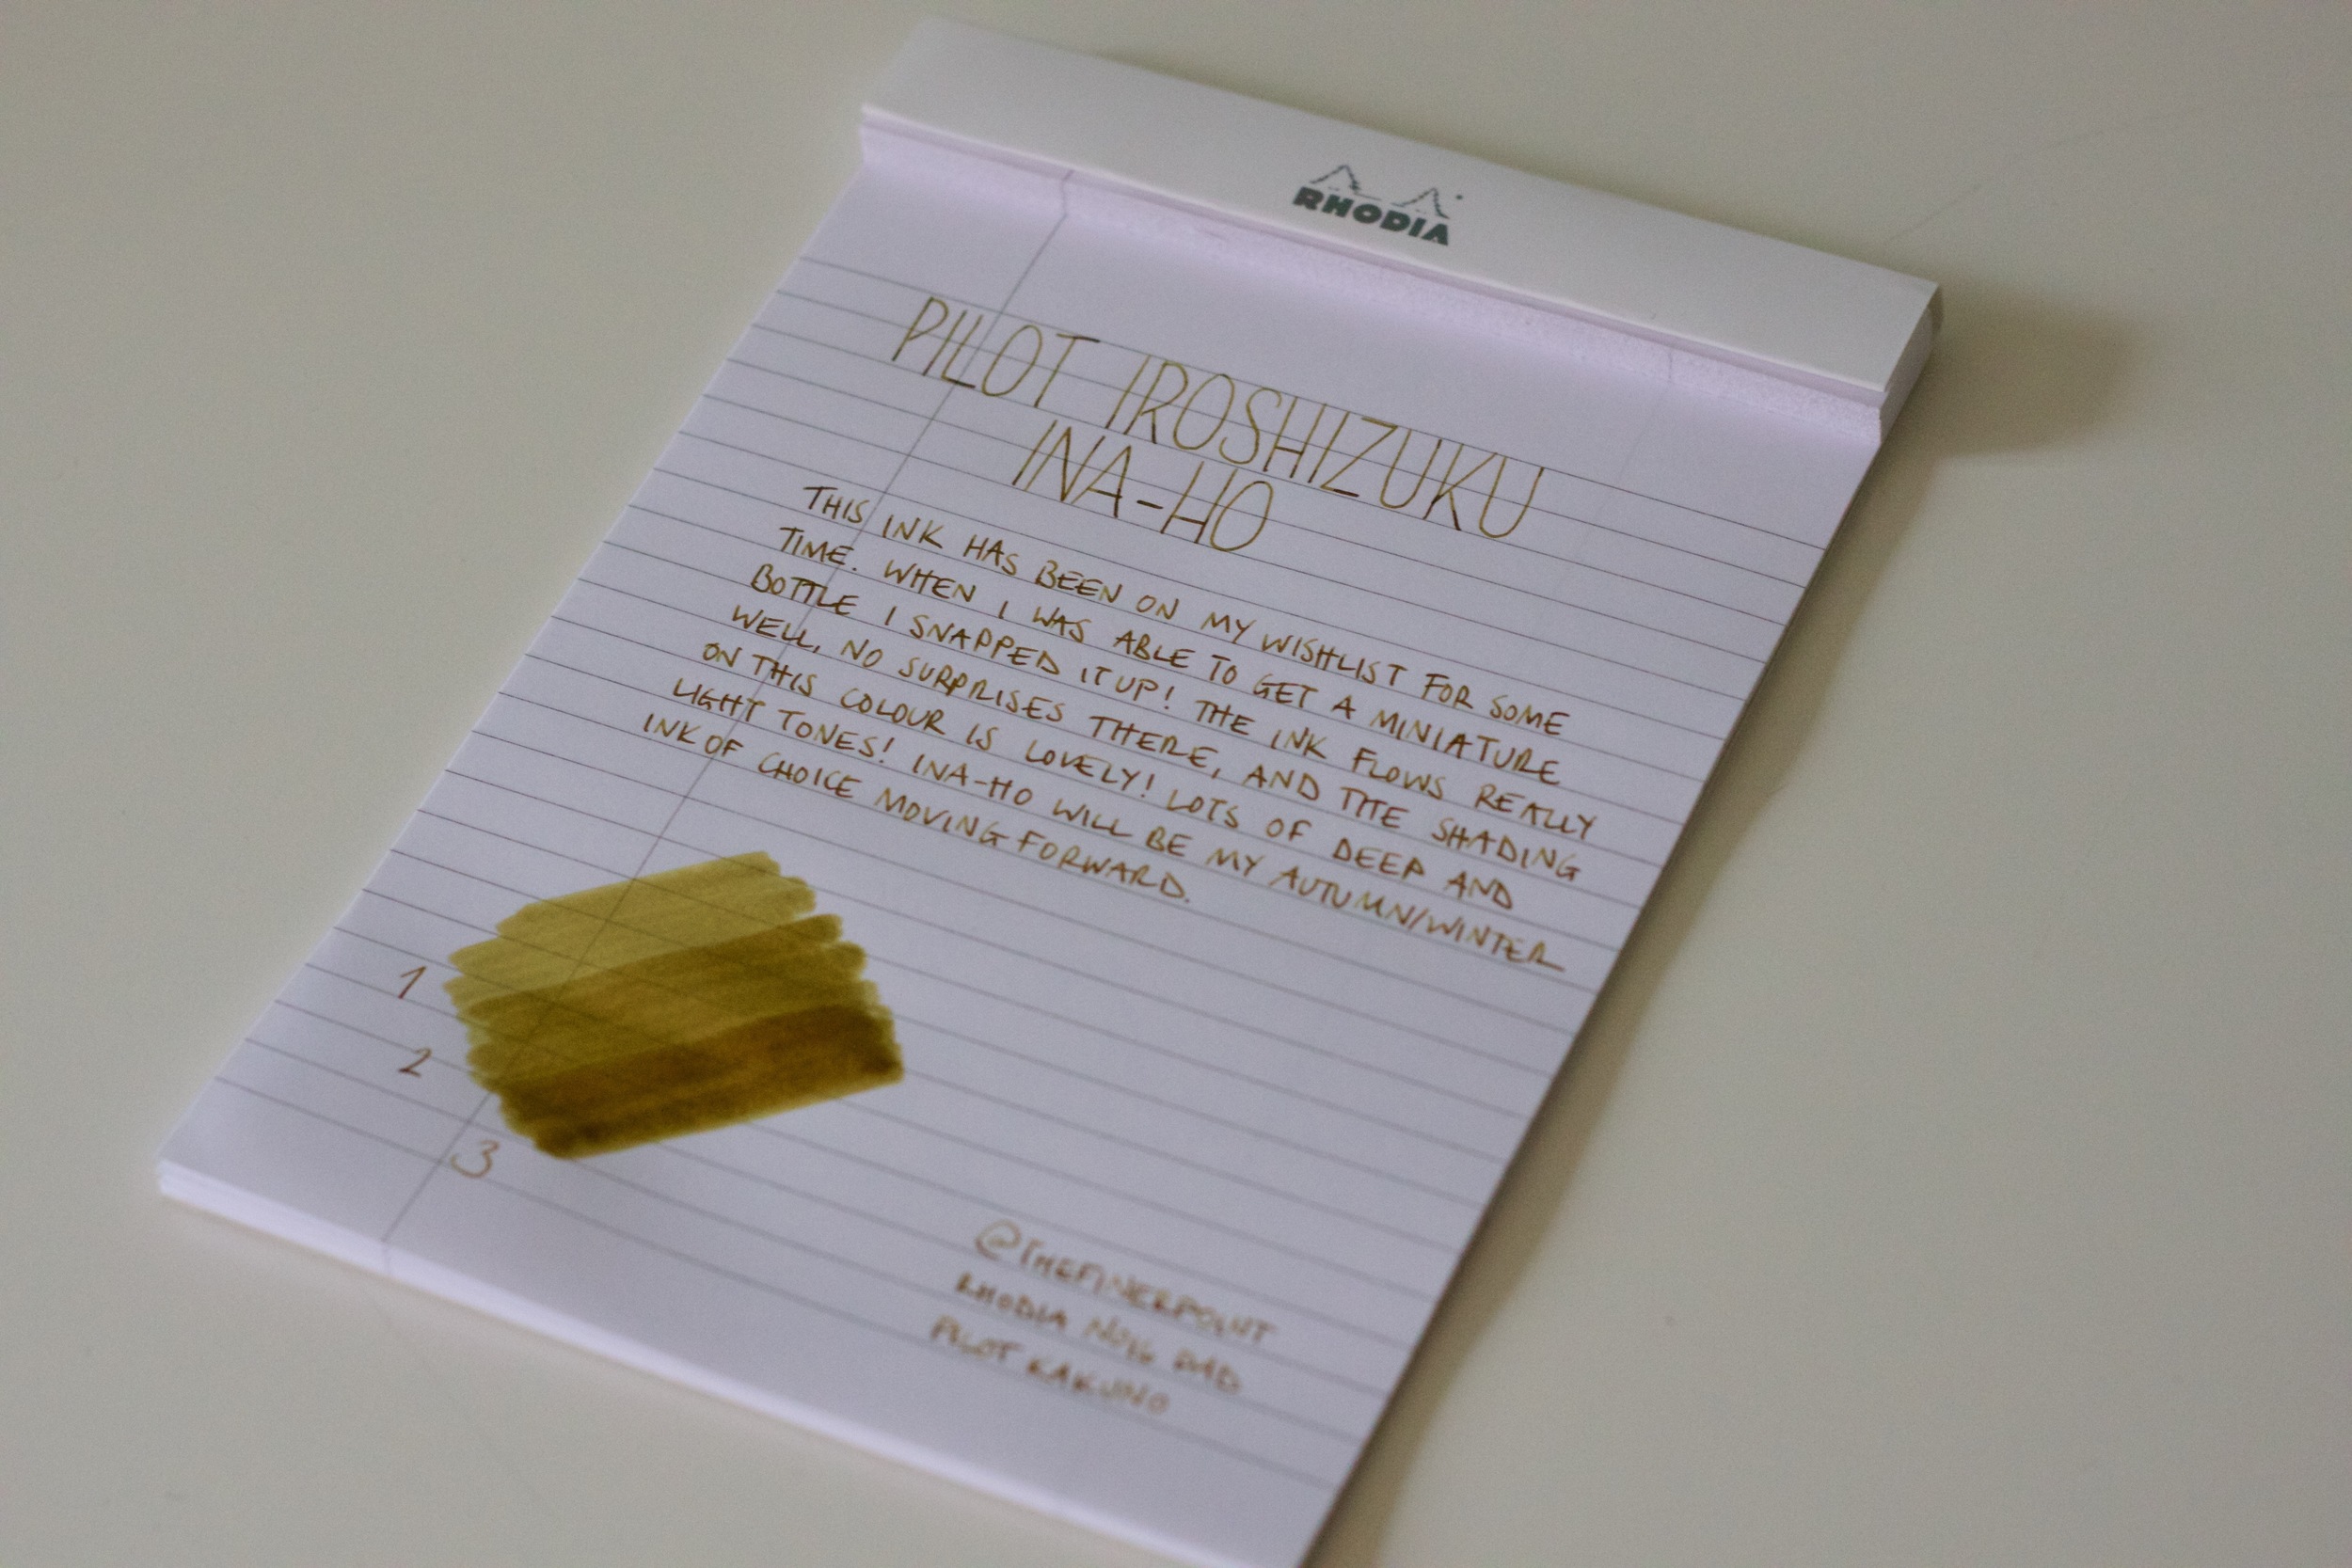 RHODIA
PILOT IROSHIZUKU
INA-HO
THIS INK HAS BEEN ON MY WISHLIST FOR SOME
TIME. WHEN I WAS ABLE TO GET A MINIATURE
BOTTLE I SNAPPED IT UP! THE INK FLOWS REALLY
WELL, NO SURPRISES THERE, AND THE SHADING
ON THIS COLOUR IS LOVELY! LOTS OF DEEP AND
LIGHT TONES! INA-HO WILL BE MY AUTUMN/WINTER
INK OF CHOICE MOVING FORWARD.
1
2
3
@THEFINERPOINT
RHODIA No16 PAD
PILOT KAKUNO